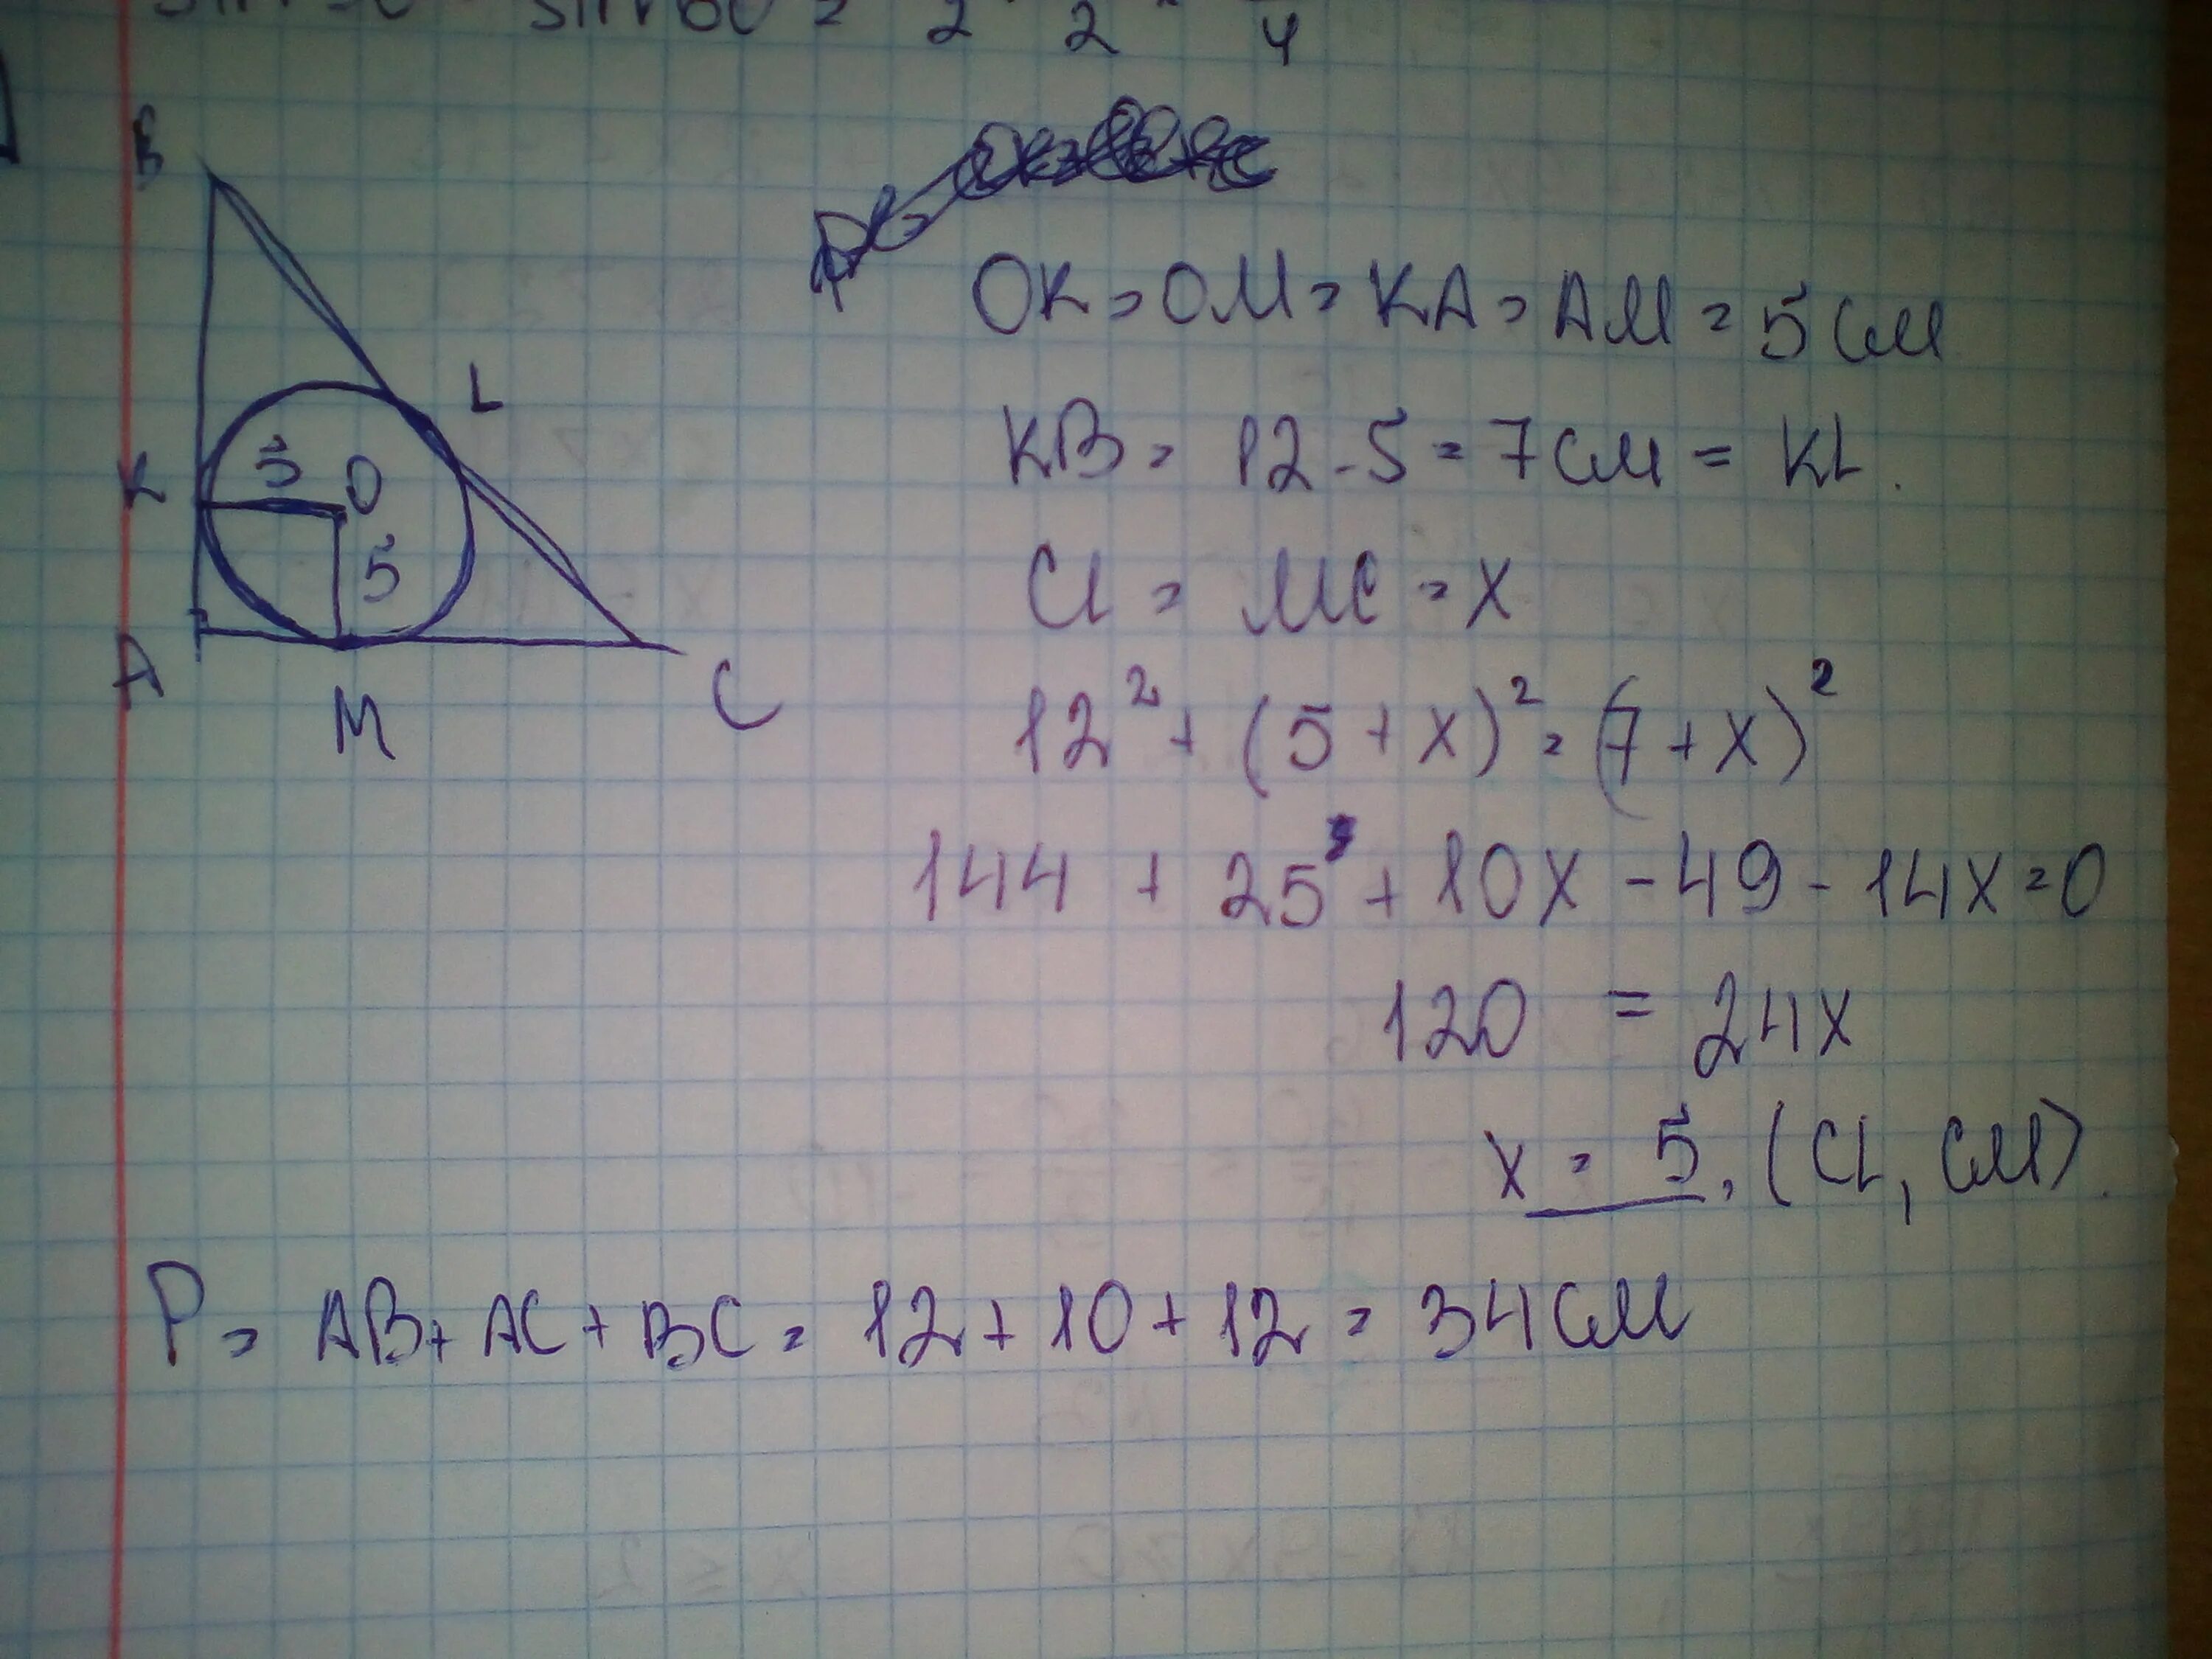 B
L
K
5
O
5
A
M
C
OK = OM = KA = AM = 5 см
KB = 12 - 5 = 7 см = KL.
CL = MC = x
12² + (5 + x)² = (7 + x)²
144 + 25 + 10x - 49 - 14x = 0
120 = 24x
x = 5, (CL, CM).
P = AB + AC + BC = 12 + 10 + 12 = 34 см